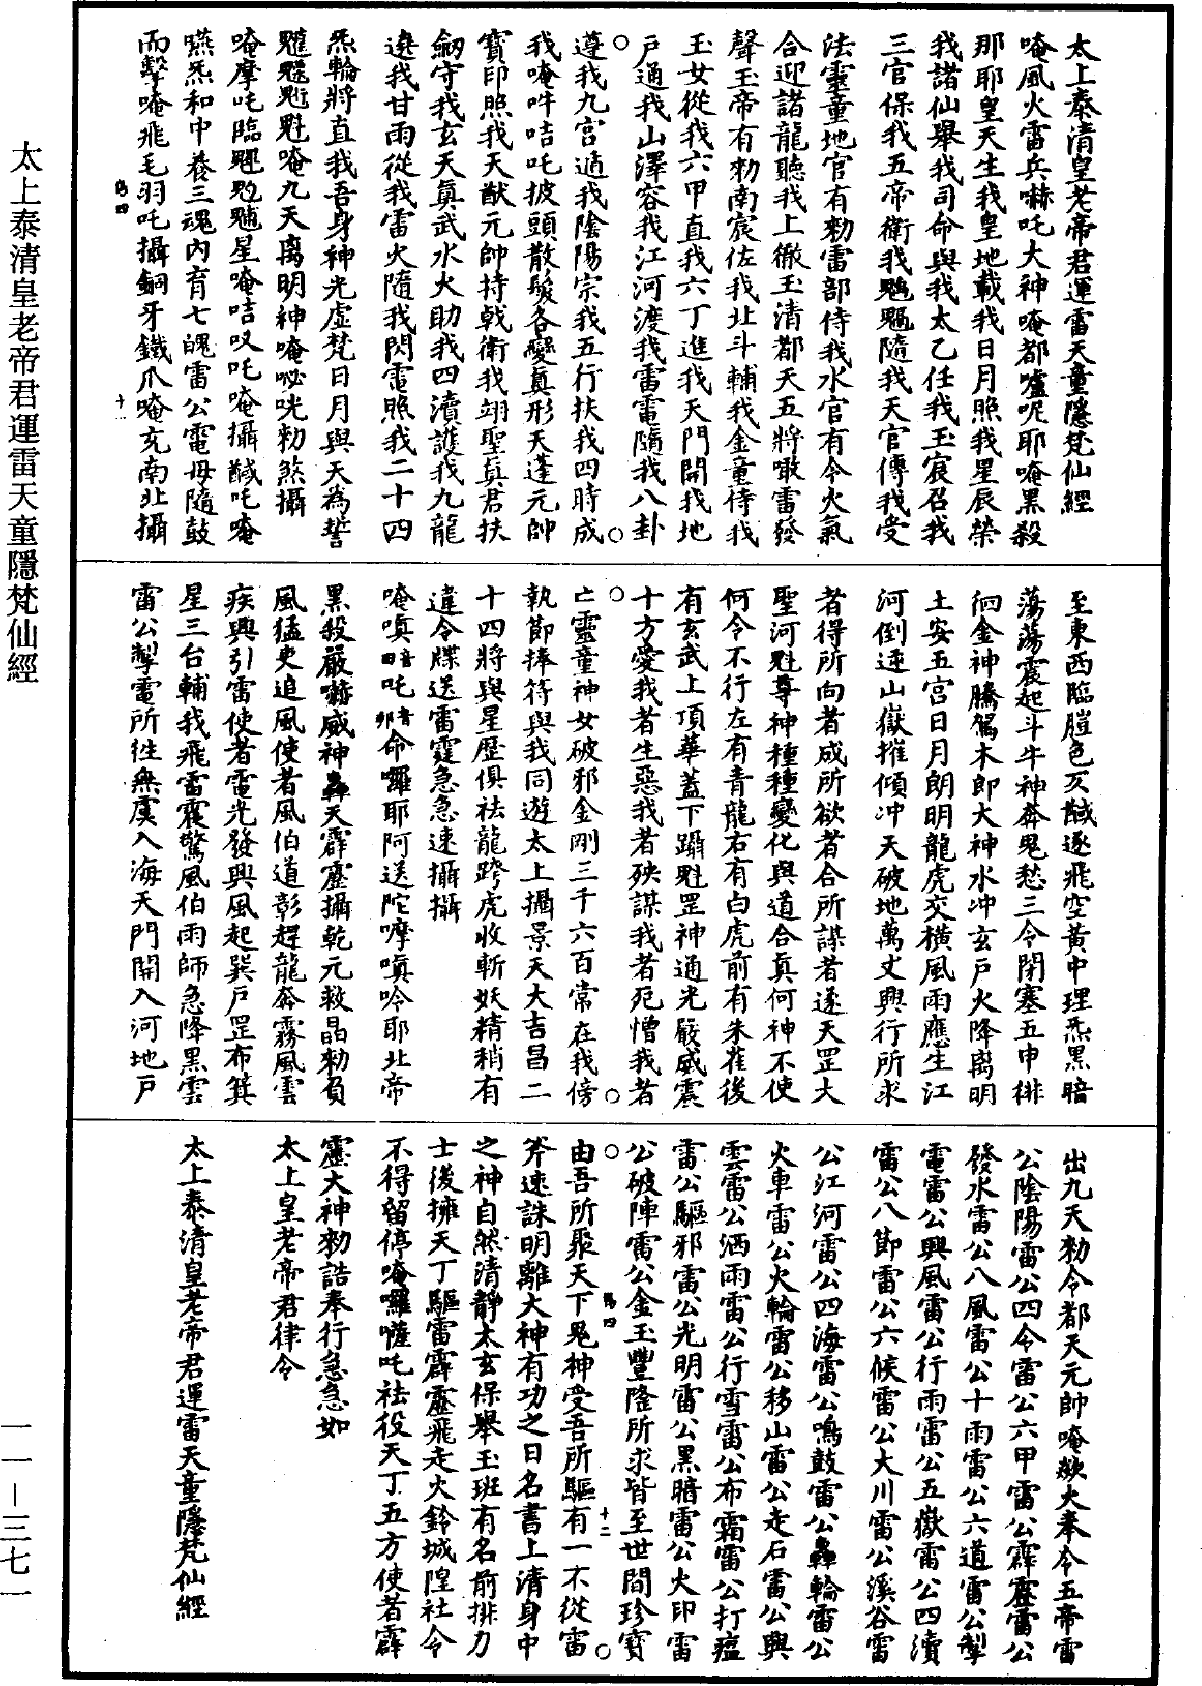 太上泰清皇老帝君運雷天童隱梵仙經
唵風火雷兵嚇吒大神唵都嚧呢耶唵黑殺
那耶皇天生我皇地載我日月照我星辰榮
我諸仙舉我司命與我太乙任我玉宸召我
三官保我五帝衛我魁魒隨我天官傳我受
法靈童地官有勑雷部侍我水官有令火氣
合迎諸龍聽我上徹玉清都天五將噉雷發
聲玉帝有勑南宸佐我北斗輔我金童待我
玉女從我六甲直我六丁進我天門開我地
戶通我山澤容我江河渡我雷電隨我八卦
遵我九宮遁我陰陽宗我五行扶我四時成
我唵吽咭吒披頭散髮各變真形天蓬元帥
寶印照我天猷元帥持戟衛我翊聖真君扶
劒守我玄天真武水火助我四瀆護我九龍
遶我甘雨從我雷火隨我閃電照我二十四
炁輪將直我吾身神光虛梵日月與天為誓
唵九天离明神唵吣咣勑煞攝
唵摩吒臨星唵咭叹吒唵攝馘吒唵
嚥炁和中養三魂內育七魄雷公電母隨鼓
而擊唵飛毛羽吒攝銅牙鐵爪唵充南北攝
至東西臨膛色灭馘逐飛空黃中理炁黑暗
蕩蕩震起斗牛神奔鬼愁三令閉塞五申徘
徊金神騰駕木郎大神水冲玄戶火降离明
土安五宮日月朗明龍虎交橫風雨應生江
河倒逆山嶽摧傾冲天破地萬丈興行所求
者得所向者成所欲者合所謀者遂天罡大
聖河魁尊神種種變化與道合真何神不使
何令不行左有青龍右有白虎前有朱雀後
有玄武上頂華蓋下躡魁罡神通光嚴威震
十方愛我者生惡我者殃謀我者死憎我者
亡靈童神女破邪金剛三千六百常在我傍
執節捧符與我同遊太上攝景天大吉昌二
十四將與星歷俱祛龍跨虎收斬妖精稍有
違令牒送雷霆急急速攝攝
唵嗔吒命囉耶阿送陀嚤嗔唥耶北帝
黑殺嚴嚇威神轟天霹靂攝乾元救晶勑負
風猛吏追風使者風伯道彰趕龍奔霧風雲
疾興引雷使者電光發興風起巽戶罡布箕
星三台輔我飛雷震驚風伯雨師急降黑雲
雷公掣電所往無虞入海天門開入河地戶
出九天勑令都天元帥唵欻火奉令五帝雷
公陰陽雷公四令雷公六甲雷公霹靂雷公
發水雷公八風雷公十雨雷公六道雷公掣
電雷公興風雷公行雨雷公五嶽雷公四瀆
雷公八節雷公六候雷公大川雷公溪谷雷
公江河雷公四海雷公鳴鼓雷公轟輪雷公
火車雷公火輪雷公移山雷公走石雷公興
雲雷公洒雨雷公行雪雷公布霜雷公打瘟
雷公驅邪雷公光明雷公黑暗雷公火印雷
公破陣雷公金玉豐隆所求皆至世間珍寶
由吾所聚天下鬼神受吾所驅有一不從雷
斧速誅明離大神有功之日名書上清身中
之神自然清靜太玄保舉玉班有名前排力
士後擁天丁驅雷霹靂飛走火鈴城隍社令
不得留停唵囉懂吒祛役天丁五方使者霹
靂大神勑誥奉行急急如
太上皇老帝君律令
太上泰清皇老帝君運雷天童隱梵仙經
太上泰清皇老帝君運雷天童隱梵仙經
一一－三七一